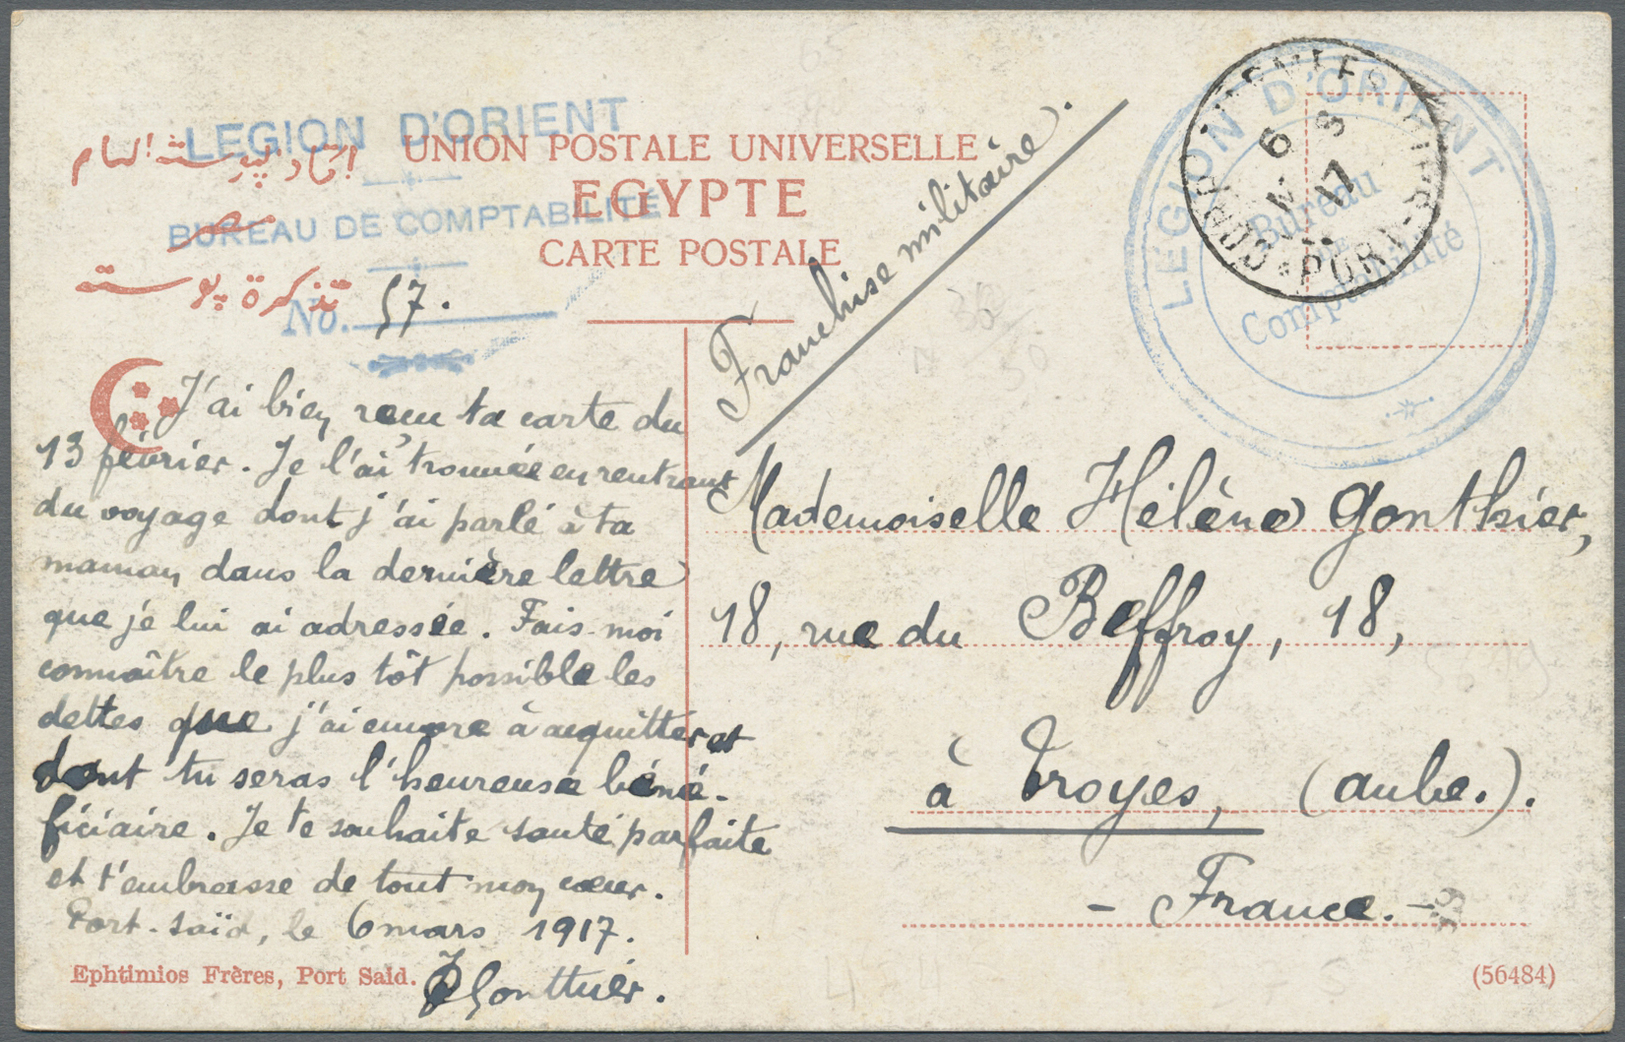 LEGION D'ORIENT
BUREAU DE COMPTABILITÉ
No. 57.
UNION POSTALE UNIVERSELLE
EGYPTE
CARTE POSTALE
مصر
تذكرة پوسته
Franchise militaire.
LEGION D'ORIENT
Bureau
de
Comptabilité
6
8
17
PORT
J'ai bien reçu ta carte du
13 février. Je l'ai trouvée en rentrant
du voyage dont j'ai parlé à ta
maman dans la dernière lettre
que je lui ai adressée. Fais-moi
connaître le plus tôt possible les
dettes que j'ai encore à acquitter et
dont tu seras l'heureuse béné-
ficiaire. Je te souhaite santé parfaite
et t'embrasse de tout mon cœur.
Port-Saïd, le 6 mars 1917.
Gonthier.
Mademoiselle Hélène Gonthier,
18, rue du Beffroy, 18,
à Troyes, (Aube.).
- France. -
Ephtimios Frères, Port Said.
(56484)